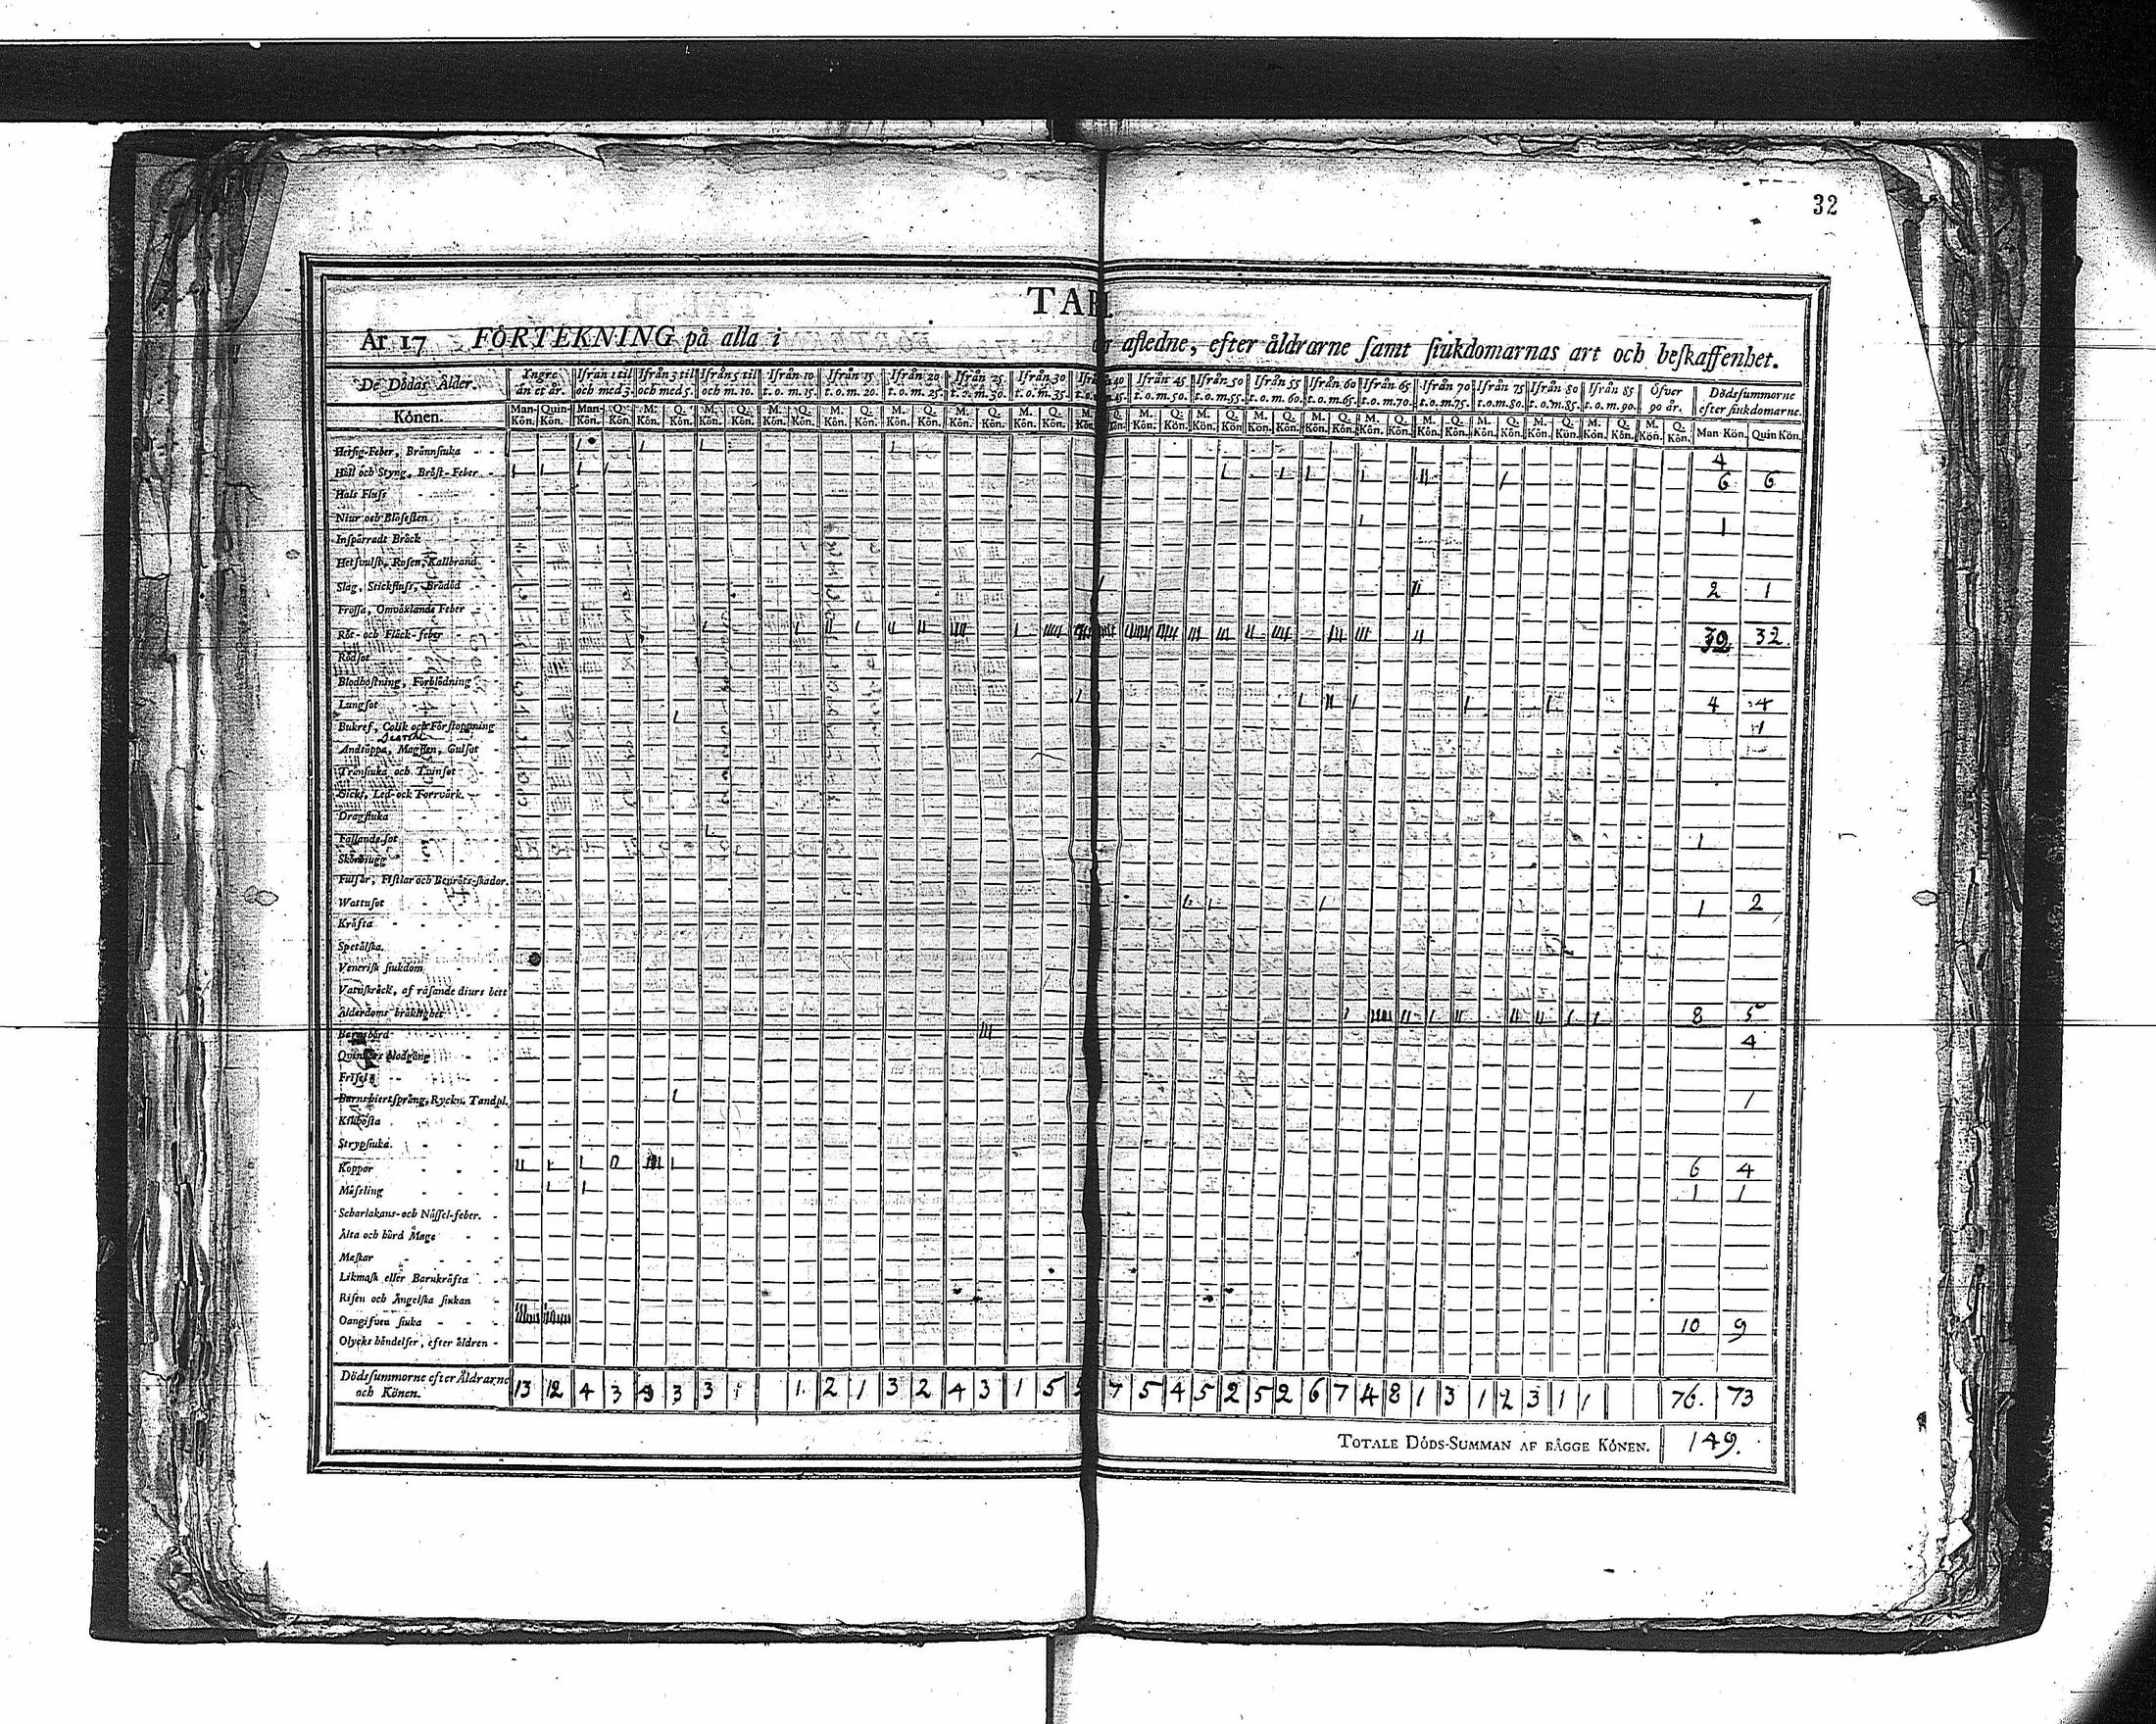 32
TAB.
År 17 FÖRTEKNING på alla i år afledne, efter åldrarne samt siukdomarnas art och beskaffenhet.
De Dödas Ålder. Yngre än et år. Ifrån 1 til och med 3. Ifrån 3 til och med 5. Ifrån 5 til och m. 10. Ifrån 10 t. o. m. 15. Ifrån 15 t. o. m. 20. Ifrån 20 t. o. m. 25. Ifrån 25 t. o. m. 30. Ifrån 30 t. o. m. 35. Ifrån 40 t. o. 45. Ifrån 45 t. o. m. 50. Ifrån 50 t. o. m. 55. Ifrån 55 t. o. m. 60. Ifrån 60 t. o. m. 65. Ifrån 65 t. o. m. 70. Ifrån 70 t. o. m. 75. Ifrån 75 t. o. m. 80. Ifrån 80 t. o. m. 85. Ifrån 85 t. o. m. 90. Öfver 90 år. Dödssummorne efter siukdomarne.
Könen. Man-Kön. Quin-Kön. Man-Kön. Q. Kön. M. Kön. Q. Kön. Man Kön. Quin Kön.
Hetsig-Feber, Brännsiuka 4
Håll och Styng, Bröst-Feber 6 6
Hals Fluss
Niur och Blåsesten 1
Inspärradt Bråck
Hetsvulst, Rosen, Kallbrand
Slag, Stickfluss, Brådöd 2 1
Frossa, Omväxlande Feber
Röt- och Fläck-feber 32
Rödsot
Blodhostning, Förblödning
Lungsot 4 4
Bukref, Colik och Förstoppning 1
Andtäppa, Magsten, Gulsot
Trånsiuka och Tvinsot
Gickt, Led- och Torrvärk
Dragsiuka
Fallande-sot 1
Skörbiugg
Fulsår, Fistlar och Benröts-skador.
Wattusot 1 2
Kräfta
Spetälska.
Venerisk siukdom
Vatuskräck, af rasande diurs bett
Ålderdoms bräklighet 8 5
Barnsbörd 4
Qvinkörs blodgång
Frisel
Barnshiertsprång, Ryckn. Tandpl. 1
Kikhosta
Strypsiuka.
Koppor 6 4
Mässling 1 1
Scharlakans- och Nässel-feber.
Älta och hård Mage
Maskar
Likmask eller Barnkräfta
Risen och Ängelska siukan
Oangifven siuka 10 9
Olycks händelser, efter åldren
Dödssummorne efter Åldrarne och Könen. 13 12 4 3 3 3 1 1. 2 1 3 2 4 3 1 5 5 7 5 4 5 2 5 2 6 7 4 8 1 3 1 2 3 1 1 76. 73
TOTALE DÖDS-SUMMAN AF BÅGGE KÖNEN. 149.